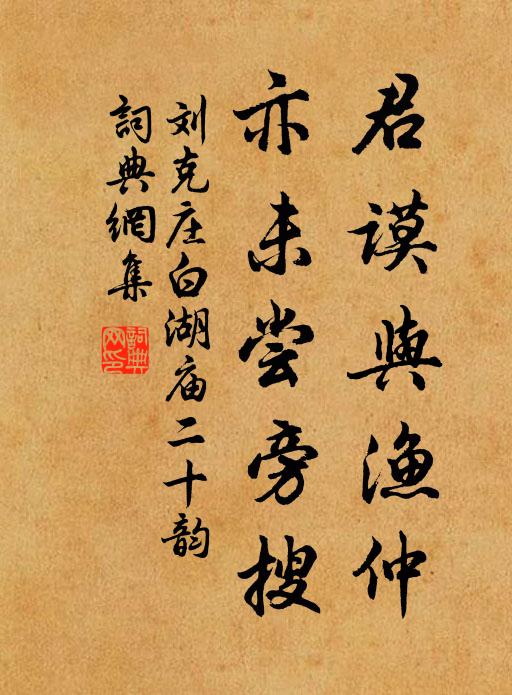 君謨與漁仲
亦未尝旁搜
刘克庄白湖庙二十韵
詞典網集
詞典網印